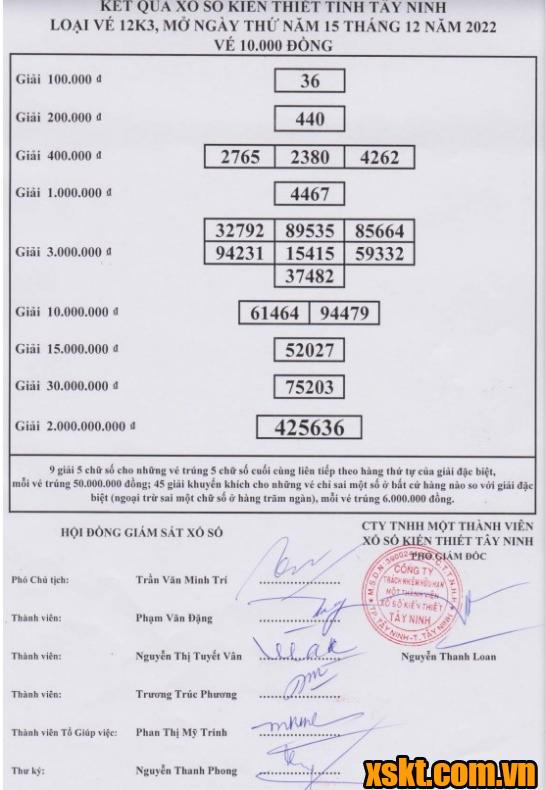 KẾT QUẢ XỔ SỐ KIẾN THIẾT TỈNH TÂY NINH
LOẠI VÉ 12K3, MỞ NGÀY THỨ NĂM 15 THÁNG 12 NĂM 2022
VÉ 10.000 ĐỒNG
Giải 100.000 đ 36
Giải 200.000 đ 440
Giải 400.000 đ 2765 2380 4262
Giải 1.000.000 đ 4467
32792 89535 85664
Giải 3.000.000 đ 94231 15415 59332
37482
Giải 10.000.000 đ 61464 94479
Giải 15.000.000 đ 52027
Giải 30.000.000 đ 75203
Giải 2.000.000.000 đ 425636
9 giải 5 chữ số cho những vé trúng 5 chữ số cuối cùng liên tiếp theo hàng thứ tự của giải đặc biệt,
mỗi vé trúng 50.000.000 đồng; 45 giải khuyến khích cho những vé chỉ sai một số ở bất cứ hàng nào so với giải đặc
biệt (ngoại trừ sai một chữ số ở hàng trăm ngàn), mỗi vé trúng 6.000.000 đồng.
HỘI ĐỒNG GIÁM SÁT XỔ SỐ
CTY TNHH MỘT THÀNH VIÊN
XỔ SỐ KIẾN THIẾT TÂY NINH
PHÓ GIÁM ĐỐC
CÔNG TY
TRÁCH NHIỆM HỮU HẠN
MỘT THÀNH VIÊN
XỔ SỐ KIẾN THIẾT
TÂY NINH
TP.TÂY NINH-T.TÂY NINH
Phó Chủ tịch: Trần Văn Minh Trí
Thành viên: Phạm Văn Đặng
Thành viên: Nguyễn Thị Tuyết Vân
Nguyễn Thanh Loan
Thành viên: Trương Trúc Phương
Thành viên Tổ Giúp việc: Phan Thị Mỹ Trinh
Thư ký: Nguyễn Thanh Phong
xskt.com.vn